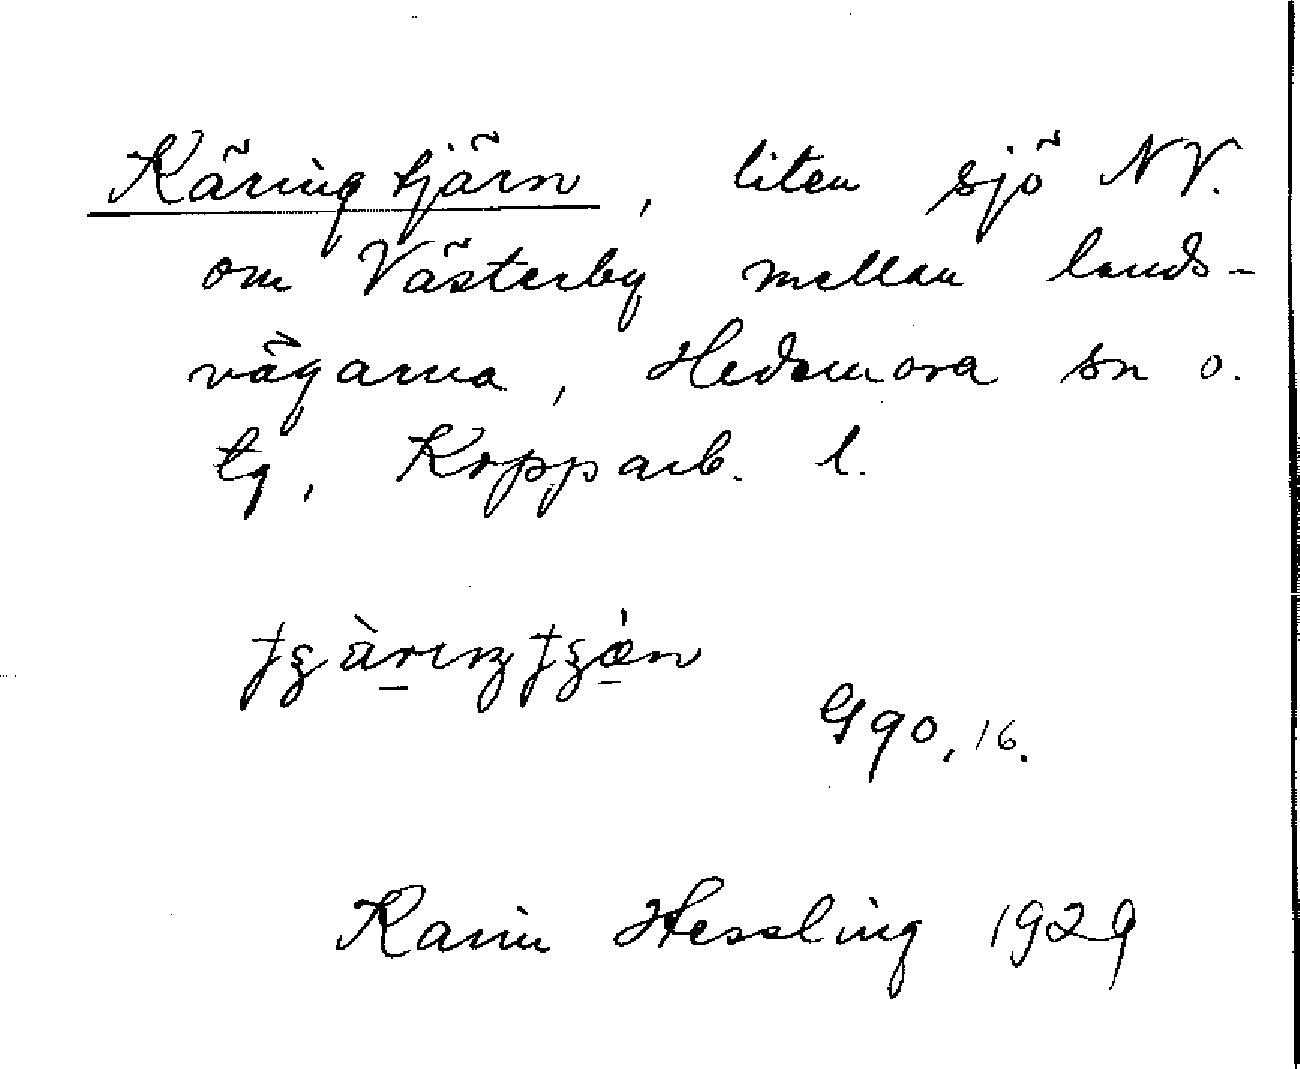 Käringtjärn, liten sjö NV.
om Västerby mellan lands-
vägarna, Hedemora sn o.
tg, Kopparb. l.
G 90, 16.
Karin Hessling 1929